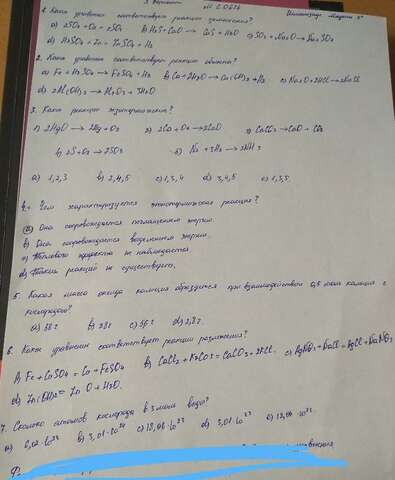 3 Вариант
1. Какие уравнения соответствуют реакции замещения?
a) 2SO2+O2 = 2SO3 b) H2S+CaO → CaS+H2O c) SO2+Na2O → Na2SO3
d) H2SO4 + Zn = ZnSO4 + H2
2. Какие уравнения соответствуют реакции обмена?
a) Fe + H2SO4 → FeSO4 + H2 b) Ca+2H2O → Ca(OH)2 + H2 c) Na2O+2HCl → 2NaCl
d) 2Al(OH)3 → Al2O3 + 3H2O
3. Какие реакции экзотермические?
1) 2HgO → 2Hg + O2 2Ca + O2 → 2CaO CaCO3 → CaO + CO2
2S+O2 → 2SO3 N2 + 3H2 → 2NH3
a) 1,2,3 b) 2,4,5 c) 1,3,4 d) 3,4,5 e) 1,3,5.
4. Чем характеризуется эндотермическая реакция?
a) Она сопровождается поглощением энергии.
b) Она сопровождается выделением энергии.
c) Теплового эффекта не наблюдается.
d) Такие реакции не существует.
5. Какая масса оксида кальция образуется при взаимодействии 0,5 моль кальция с
кислородом?
a) 58 г b) 28 г c) 56 г d) 2,8 г.
6. Какие уравнения соответствует реакции разложения?
Fe + CoSO4 = Co + FeSO4 b) CaCl2 + K2CO3 = CaCO3 + 2KCl. c) AgNO3 + NaCl = AgCl + NaNO3
d) Zn(OH)2 = ZnO + H2O.
7. Сколько атомов кислорода в 3 моль воды?
a) 6,02·10²³ b) 3,01·10²⁴ c) 18,06·10²³ d) 3,01·10²³